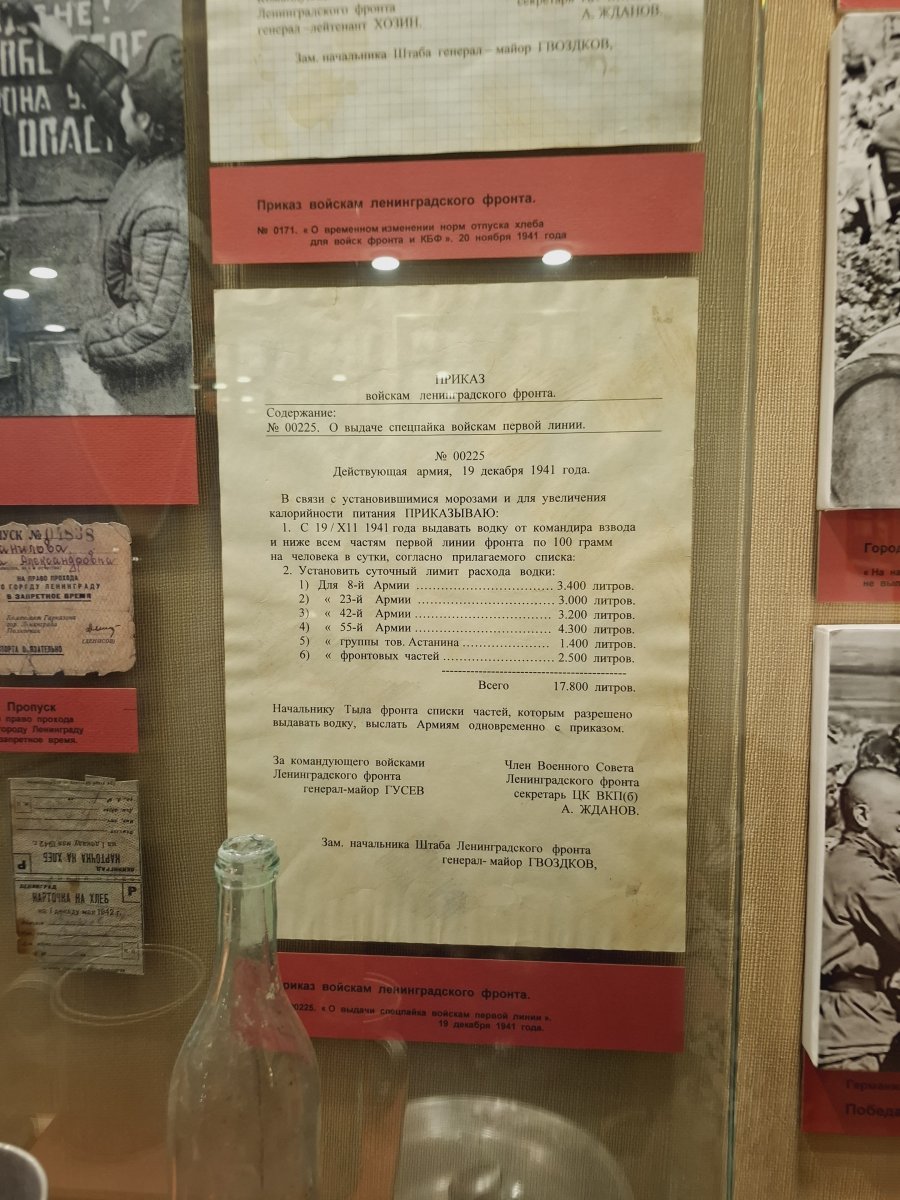 Ленинградского фронта
генерал-лейтенант ХОЗИН.
А. ЖДАНОВ.
Зам. начальника Штаба генерал-майор ГВОЗДКОВ,
Приказ войскам ленинградского фронта.
№ 0171. « О временном изменении норм отпуска хлеба
для войск фронта и КБФ ». 20 ноября 1941 года
ПРИКАЗ
войскам ленинградского фронта.
Содержание:
№ 00225. О выдаче спецпайка войскам первой линии.
№ 00225
Действующая армия, 19 декабря 1941 года.
В связи с установившимися морозами и для увеличения
калорийности питания ПРИКАЗЫВАЮ:
1. С 19/X11 1941 года выдавать водку от командира взвода
и ниже всем частям первой линии фронта по 100 грамм
на человека в сутки, согласно прилагаемого списка:
2. Установить суточный лимит расхода водки:
1) Для 8-й Армии ................................ 3.400 литров.
2) « 23-й Армии ................................ 3.000 литров.
3) « 42-й Армии ................................ 3.200 литров.
4) « 55-й Армии ................................ 4.300 литров.
5) « группы тов. Астанина .................... 1.400 литров.
6) « фронтовых частей ......................... 2.500 литров.
Всего 17.800 литров.
Начальнику Тыла фронта списки частей, которым разрешено
выдавать водку, выслать Армиям одновременно с приказом.
За командующего войсками
Ленинградского фронта
генерал-майор ГУСЕВ
Член Военного Совета
Ленинградского фронта
секретарь ЦК ВКП(б)
А. ЖДАНОВ.
Зам. начальника Штаба Ленинградского фронта
генерал- майор ГВОЗДКОВ,
войскам ленинградского фронта.
« О выдачи спецпайка войскам первой линии ».
19 декабря 1941 года.
НА ПРАВО ПРОХОДА
ГОРОДУ ЛЕНИНГРАДУ
В ЗАПРЕТНОЕ ВРЕМЯ
Комендант Гарнизона
гор. Ленинграда
Полковник
(ДЕНИСОВ)
Пропуск
право прохода
городу Ленинграду
запретное время.
КАРТОЧКА НА ХЛЕБ
на I декаду мая 1942 г.
ЛЕНИНГРАД
Р
ЛЕНИНГРАД
Р
КАРТОЧКА НА ХЛЕБ
на I декаду мая 1942 г.